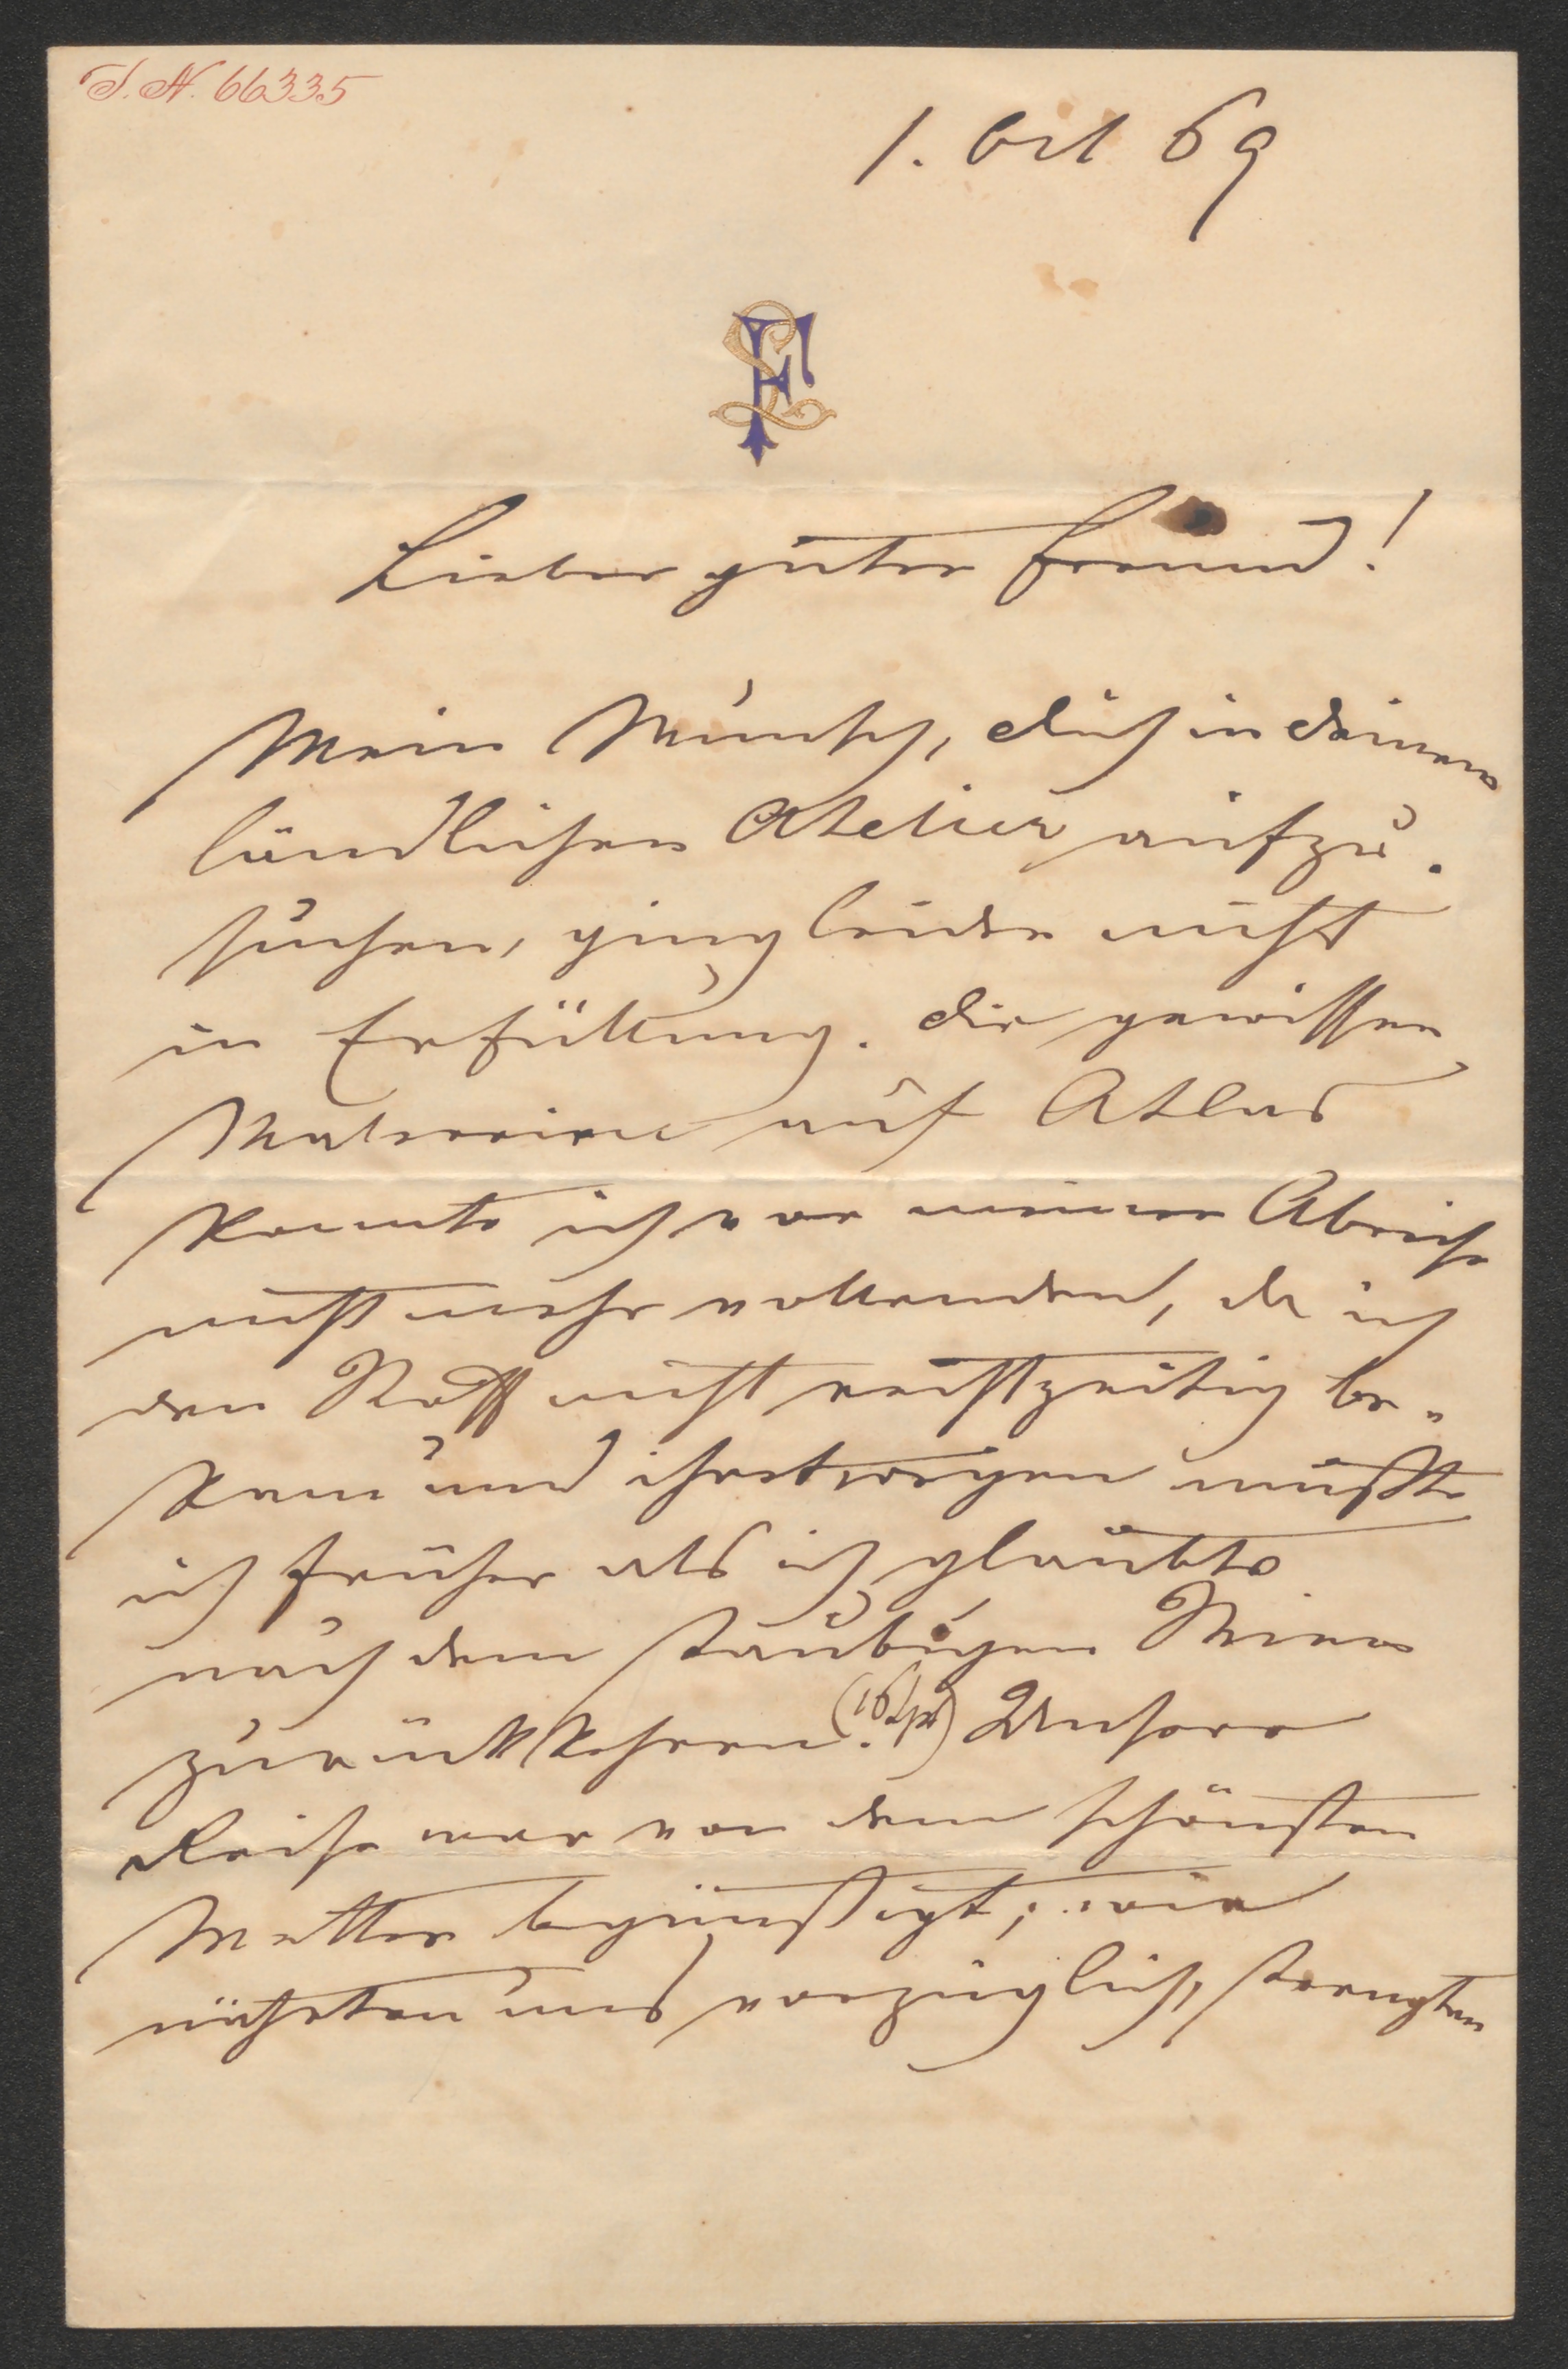 J. N. 66335
1. Oct 69
FL
Lieber guter Freund!
Mein Wunsch, dich in deinem
ländlichen Atelier aufzu-
suchen, ging leider nicht
in Erfüllung. Die gewissen
Malereien auf Atlas
konnte ich vor meiner Abreise
nicht mehr vollenden, da ich
den Stoff nicht rechtzeitig be-
kam und ihretwegen mußte
ich früher als ich glaubte
nach dem staubigen Wien
zurückkehren. (16/Spt) Unsere
Reise war von dem schönsten
Wetter begünstigt; wir
nährten uns vorzüglich, strengten